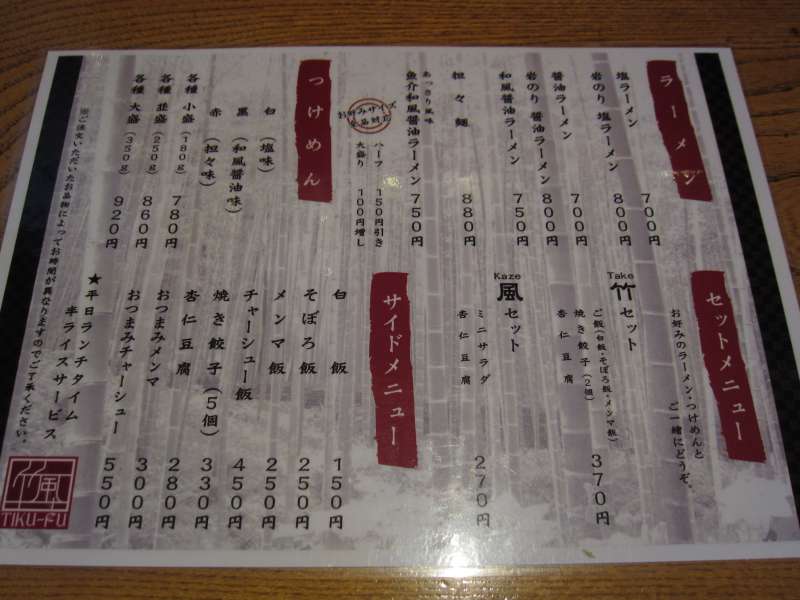 ラーメン
塩ラーメン 700円
岩のり 塩ラーメン 800円
醤油ラーメン 700円
岩のり 醤油ラーメン 800円
和風醤油ラーメン 750円
担々麺 880円
あっさり風味
魚介和風醤油ラーメン 750円
お好みサイズ
全品対応
ハーフ 150円引き
大盛り 100円増し
つけめん
白 (塩味)
黒 (和風醤油味)
赤 (担々味)
各種 小盛 (180g) 780円
各種 並盛 (250g) 860円
各種 大盛 (350g) 920円
※ご注文いただいたお品物によってお時間が異なりますのでご了承ください。
セットメニュー
お好みのラーメン・つけめんと
ご一緒にどうぞ。
Take
竹セット 370円
ご飯(白飯・そぼろ飯・メンマ飯)
焼き餃子(2個)
杏仁豆腐
Kaze
風セット 270円
ミニサラダ
杏仁豆腐
サイドメニュー
白飯 150円
そぼろ飯 250円
メンマ飯 250円
チャーシュー飯 450円
焼き餃子(5個) 330円
杏仁豆腐 280円
おつまみメンマ 300円
おつまみチャーシュー 550円
★平日ランチタイム
半ライスサービス
竹風
TIKU-FU